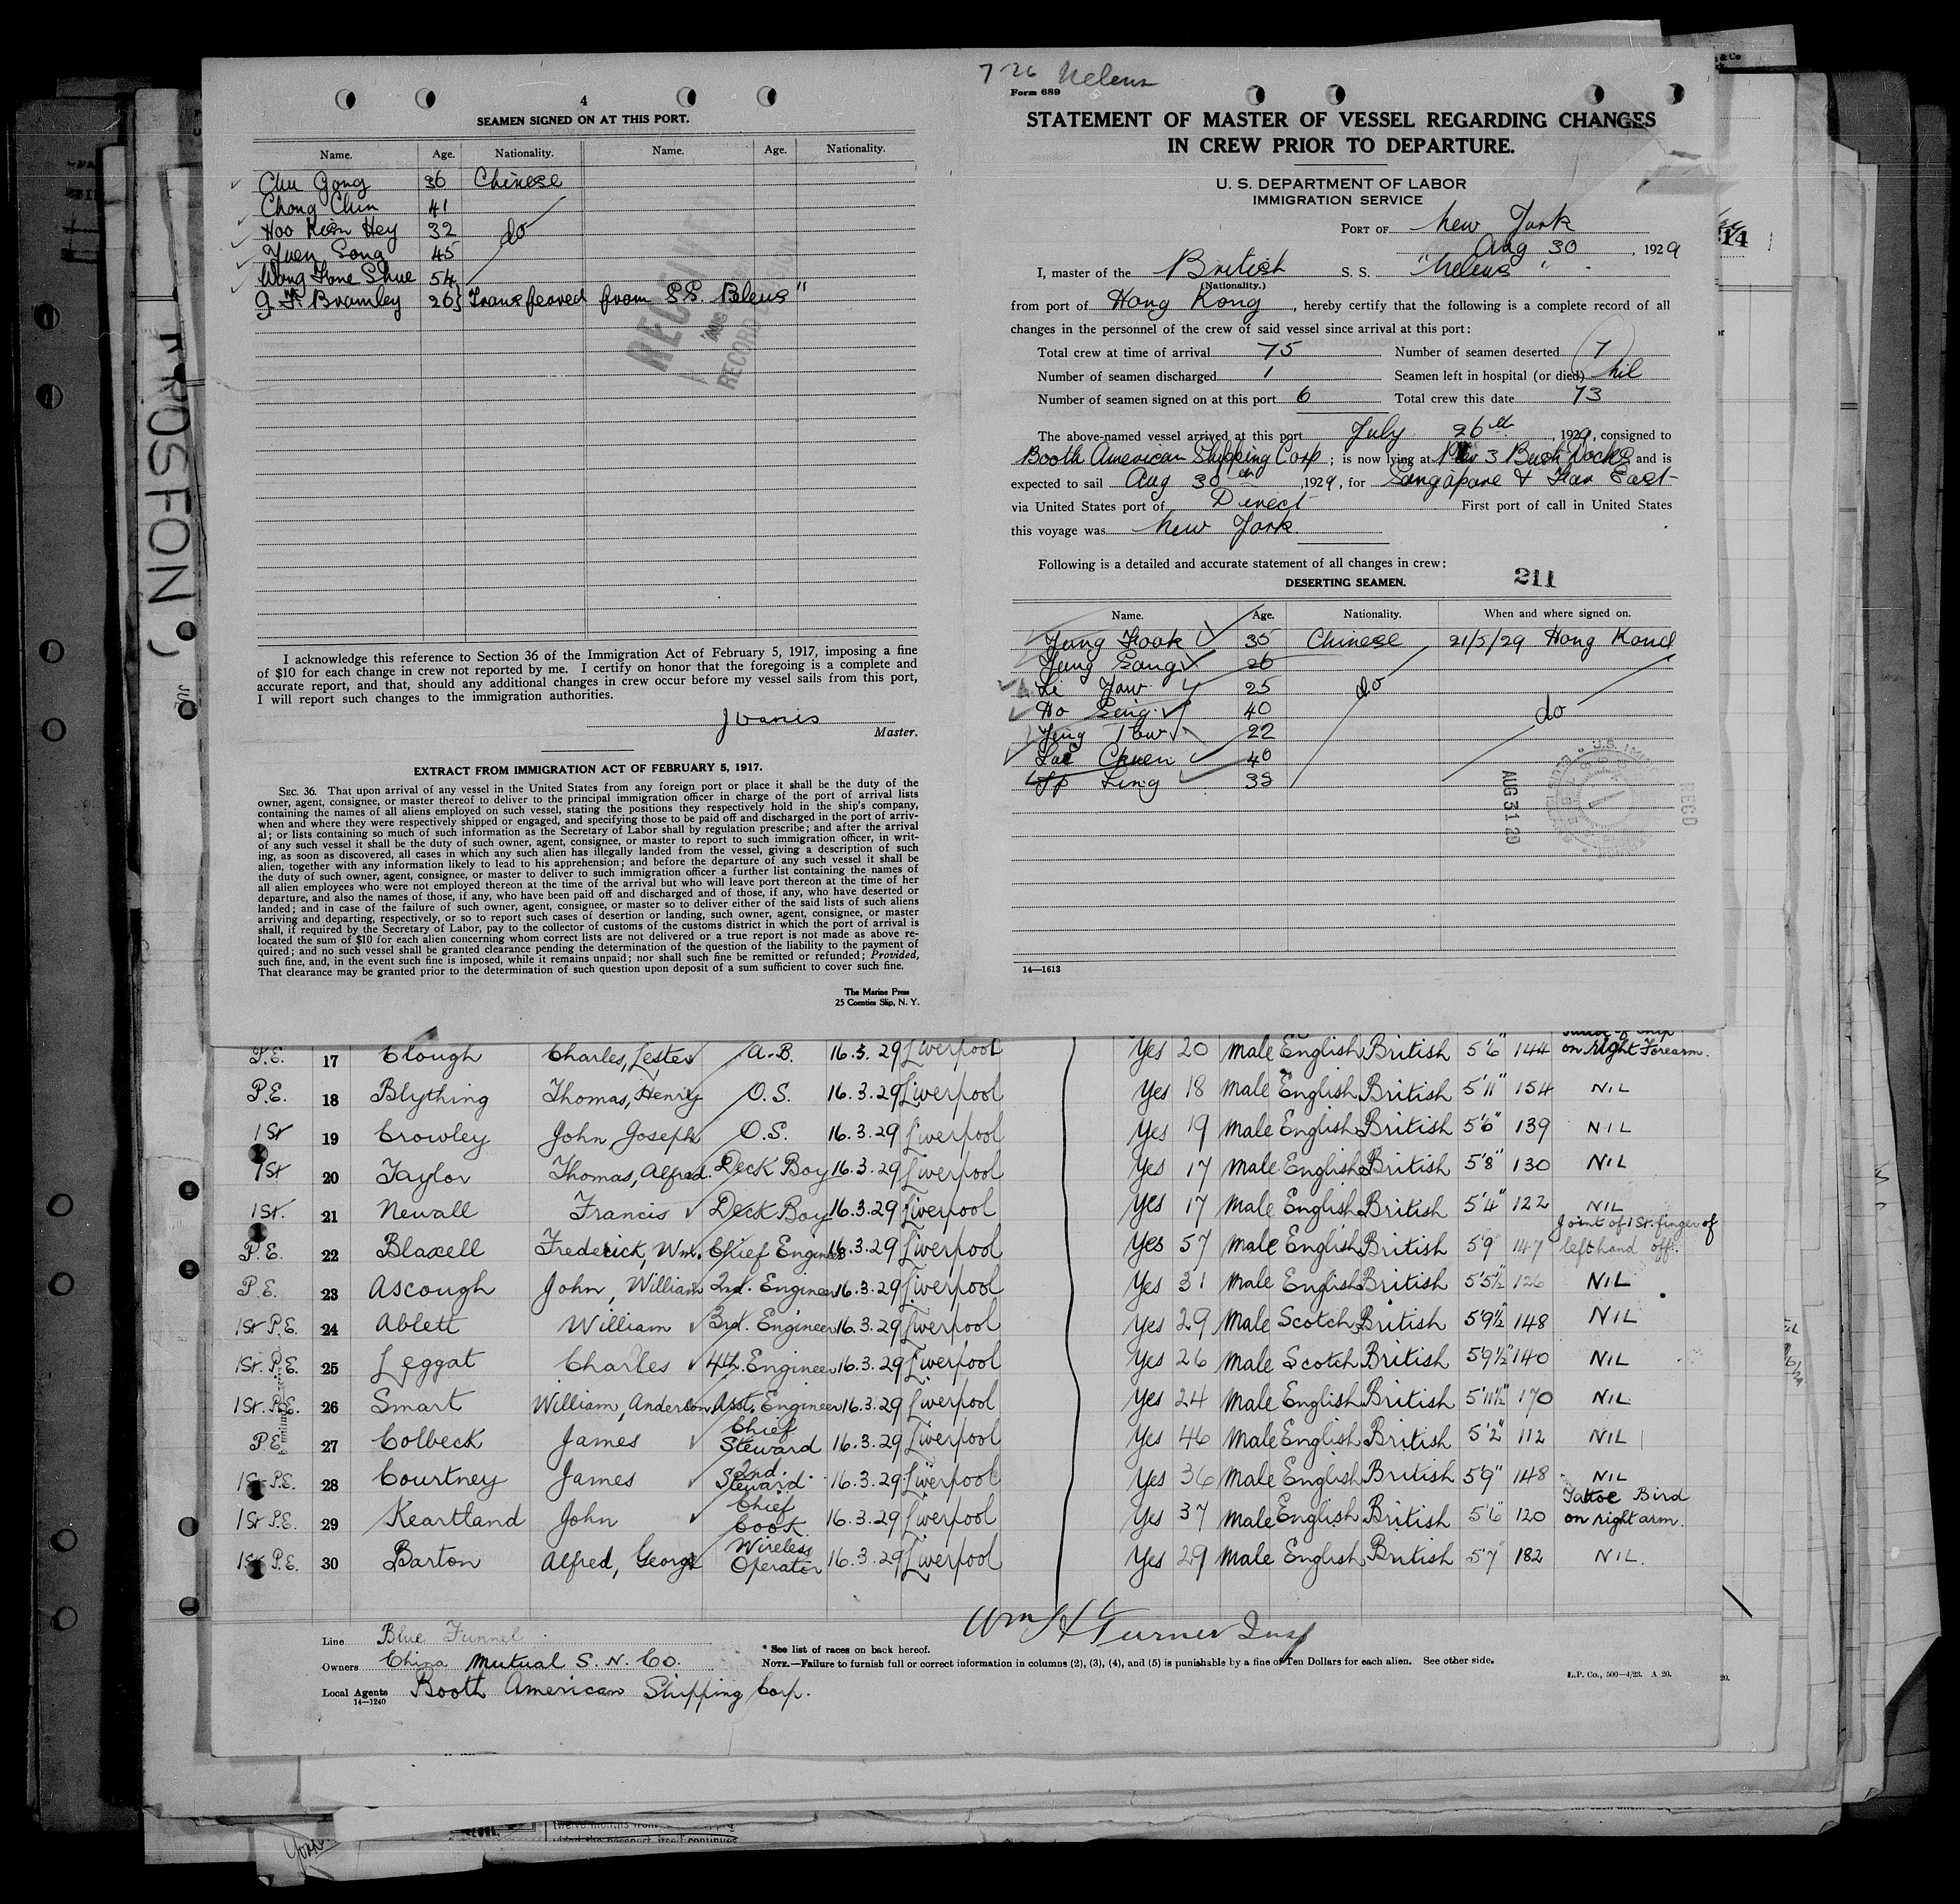 4
SEAMEN SIGNED ON AT THIS PORT.
Name. Age. Nationality. Name. Age. Nationality.
Chu Gong 36 Chinese
Chong Chin 41
Hoo Kien Hey 32 do
Yuen Song 45
Wong Fone Shue 54
G. F. Bramley 26} Transferred from S.S. "Peleus"
RECEIVED
RECORD
I acknowledge this reference to Section 36 of the Immigration Act of February 5, 1917, imposing a fine
of $10 for each change in crew not reported by me. I certify on honor that the foregoing is a complete and
accurate report, and that, should any additional changes in crew occur before my vessel sails from this port,
I will report such changes to the immigration authorities.
Master.
EXTRACT FROM IMMIGRATION ACT OF FEBRUARY 5, 1917.
SEC. 36. That upon arrival of any vessel in the United States from any foreign port or place it shall be the duty of the
owner, agent, consignee, or master thereof to deliver to the principal immigration officer in charge of the port of arrival lists
containing the names of all aliens employed on such vessel, stating the positions they respectively hold in the ship's company,
when and where they were respectively shipped or engaged, and specifying those to be paid off and discharged in the port of arriv-
al; or lists containing so much of such information as the Secretary of Labor shall by regulation prescribe; and after the arrival
of any such vessel it shall be the duty of such owner, agent, consignee, or master to report to such immigration officer, in writ-
ing, as soon as discovered, all cases in which any such alien has illegally landed from the vessel, giving a description of such
alien, together with any information likely to lead to his apprehension; and before the departure of any such vessel it shall be
the duty of such owner, agent, consignee, or master to deliver to such immigration officer a further list containing the names of
all alien employees who were not employed thereon at the time of the arrival but who will leave port thereon at the time of her
departure, and also the names of those, if any, who have been paid off and discharged and of those, if any, who have deserted or
landed; and in case of the failure of such owner, agent, consignee, or master so to deliver either of the said lists of such aliens
arriving and departing, respectively, or so to report such cases of desertion or landing, such owner, agent, consignee, or master
shall, if required by the Secretary of Labor, pay to the collector of customs of the customs district in which the port of arrival is
located the sum of $10 for each alien concerning whom correct lists are not delivered or a true report is not made as above re-
quired; and no such vessel shall be granted clearance pending the determination of the question of the liability to the payment of
such fine, and, in the event such fine is imposed, while it remains unpaid; nor shall such fine be remitted or refunded; Provided,
That clearance may be granted prior to the determination of such question upon deposit of a sum sufficient to cover such fine.
The Marine Press
25 Coenties Slip, N. Y.
7 26 Helenus
Form 689
STATEMENT OF MASTER OF VESSEL REGARDING CHANGES
IN CREW PRIOR TO DEPARTURE.
U. S. DEPARTMENT OF LABOR
IMMIGRATION SERVICE
PORT OF New York
Aug 30, 1929
I, master of the British S. S. "Helenus"
(Nationality.)
from port of Hong Kong, hereby certify that the following is a complete record of all
changes in the personnel of the crew of said vessel since arrival at this port:
Total crew at time of arrival 75 Number of seamen deserted 7
Number of seamen discharged 1 Seamen left in hospital (or died) nil
Number of seamen signed on at this port 6 Total crew this date 73
The above-named vessel arrived at this port July 26th, 1929, consigned to
Booth American Shipping Corp; is now lying at Pier 3 Bush Docks and is
expected to sail Aug 30th, 1929, for Singapore & Far East
via United States port of Direct First port of call in United States
this voyage was New York.
Following is a detailed and accurate statement of all changes in crew:
DESERTING SEAMEN.
211
Name. Age. Nationality. When and where signed on.
Yung Fook 35 Chinese 21/5/29 Hong Kong
Yung Sang 26
Li Yaw 25 do
Ho Seing 40 do
Yung Tow 22
Lai Chuen 40
Yp Ling 33
AUG 31 29
REC'D
14—1613
P.E. 17 Clough Charles, Lester A.B. 16.3.29 Liverpool Yes 20 Male English British 5'6" 144 on right Forearm.
P.E. 18 Blything Thomas, Henry O.S. 16.3.29 Liverpool Yes 18 Male English British 5'11" 154 NIL
1St 19 Crowley John Joseph O.S. 16.3.29 Liverpool Yes 19 Male English British 5'6" 139 NIL
1St 20 Taylor Thomas, Alfred. Deck Boy 16.3.29 Liverpool Yes 17 Male English British 5'8" 130 NIL
1St. 21 Newall Francis Deck Boy 16.3.29 Liverpool Yes 17 Male English British 5'4" 122 NIL
P.E. 22 Blaxell Frederick, Wm. Chief Engineer 16.3.29 Liverpool Yes 57 Male English British 5'9" 147 Joint of 1St. finger of left hand off.
P.E. 23 Ascough John, William 2nd. Engineer 16.3.29 Liverpool Yes 31 Male English British 5'5½ 126 NIL
1St P.E. 24 Ablett William 3rd. Engineer 16.3.29 Liverpool Yes 29 Male Scotch British 5'9½" 148 NIL
1St. P.E. 25 Leggat Charles 4th. Engineer 16.3.29 Liverpool Yes 26 Male Scotch British 5'9½" 140 NIL
1St. P.E. 26 Smart William, Anderson Asst. Engineer 16.3.29 Liverpool Yes 24 Male English British 5'11½" 170 NIL
P.E. 27 Colbeck James Chief Steward 16.3.29 Liverpool Yes 46 Male English British 5'2" 112 NIL
1St P.E. 28 Courtney James 2nd. Steward 16.3.29 Liverpool Yes 36 Male English British 5'9" 148 NIL
1St P.E. 29 Keartland John Chief Cook. 16.3.29 Liverpool Yes 37 Male English British 5'6" 120 Tattoe Bird on right arm.
1St P.E. 30 Barton Alfred, George Wireless Operator 16.3.29 Liverpool Yes 29 Male English British 5'7" 182 NIL.
Wm H Turner Insp
Line Blue Funnel
Owners China Mutual S. N. Co.
Local Agents Booth American Shipping Corp.
14—1240
* See list of races on back hereof.
NOTE.—Failure to furnish full or correct information in columns (2), (3), (4), and (5) is punishable by a fine of Ten Dollars for each alien. See other side.
L.P. Co., 500—4/23. A 20.
PROSFON)
14